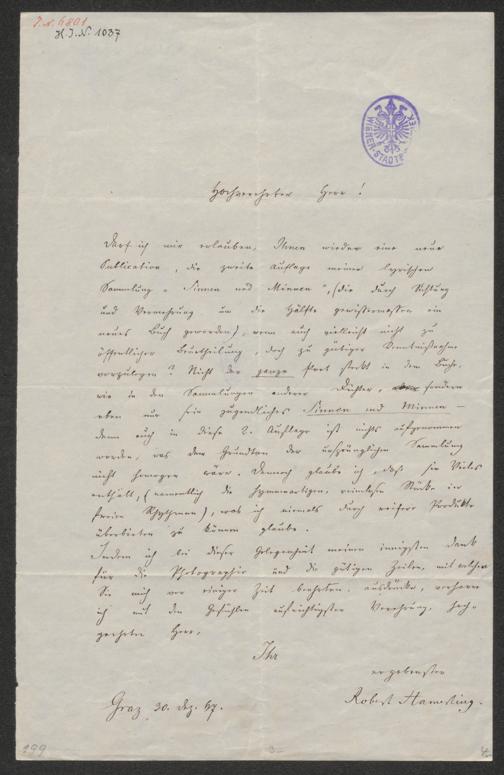 J.N. 6801
H.J.N. 1037
WIENER-STADTBIBLIOTHEK
Hochverehrter Herr!
Darf ich mir erlauben, Ihnen wieder eine neue
Publication, die zweite Auflage meiner lyrischen
Sammlung „Sinnen und Minnen“, (die durch Sichtung
und Vermehrung um die Hälfte gewissermassen ein
neues Buch geworden), wenn auch vielleicht nicht zu
öffentlicher Beurtheilung, doch zu gütiger Kenntnißnahme
vorzulegen? Nicht der ganze Poet steckt in dem Buche,
wie in den Sammlungen anderer Dichter, sondern
eben nur sein jugendliches Sinnen und Minnen –
denn auch in diese 2. Auflage ist nichts aufgenommen
worden, was dem Grundton der ursprünglichen Sammlung
nicht homogen wäre. Dennoch glaube ich, daß sie Vieles
enthält, (namentlich die hymnenartigen, reimlosen Stücke in
freien Rhythmen), was ich niemals durch reifere Produkte
überbieten zu können glaube.
Indem ich bei dieser Gelegenheit meinen innigsten Dank
für die Photographie und die gütigen Zeilen, mit welchen
Sie mich vor einiger Zeit beehrten, ausdrücke, verharre
ich mit den Gefühlen aufrichtigster Verehrung, hoch-
geehrter Herr,
Ihr
ergebenster
Robert Hamerling.
Graz 30. Dez. 67.
199